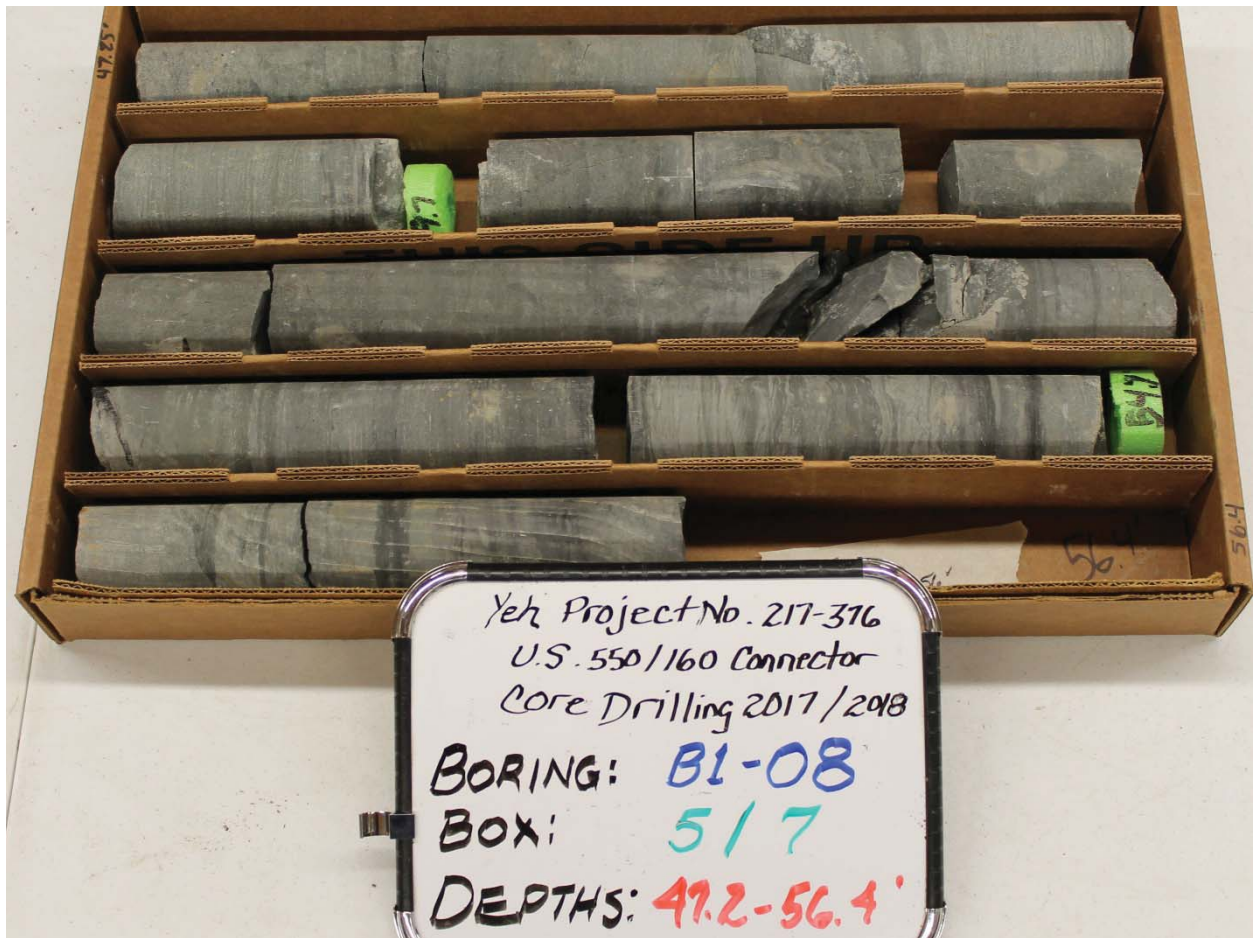 47.25'
54.9
56.4'
56.4
Yeh Project No. 217-376
U.S. 550/160 Connector
Core Drilling 2017/2018
BORING: B1-08
BOX: 5/7
DEPTHS: 47.2-56.4'